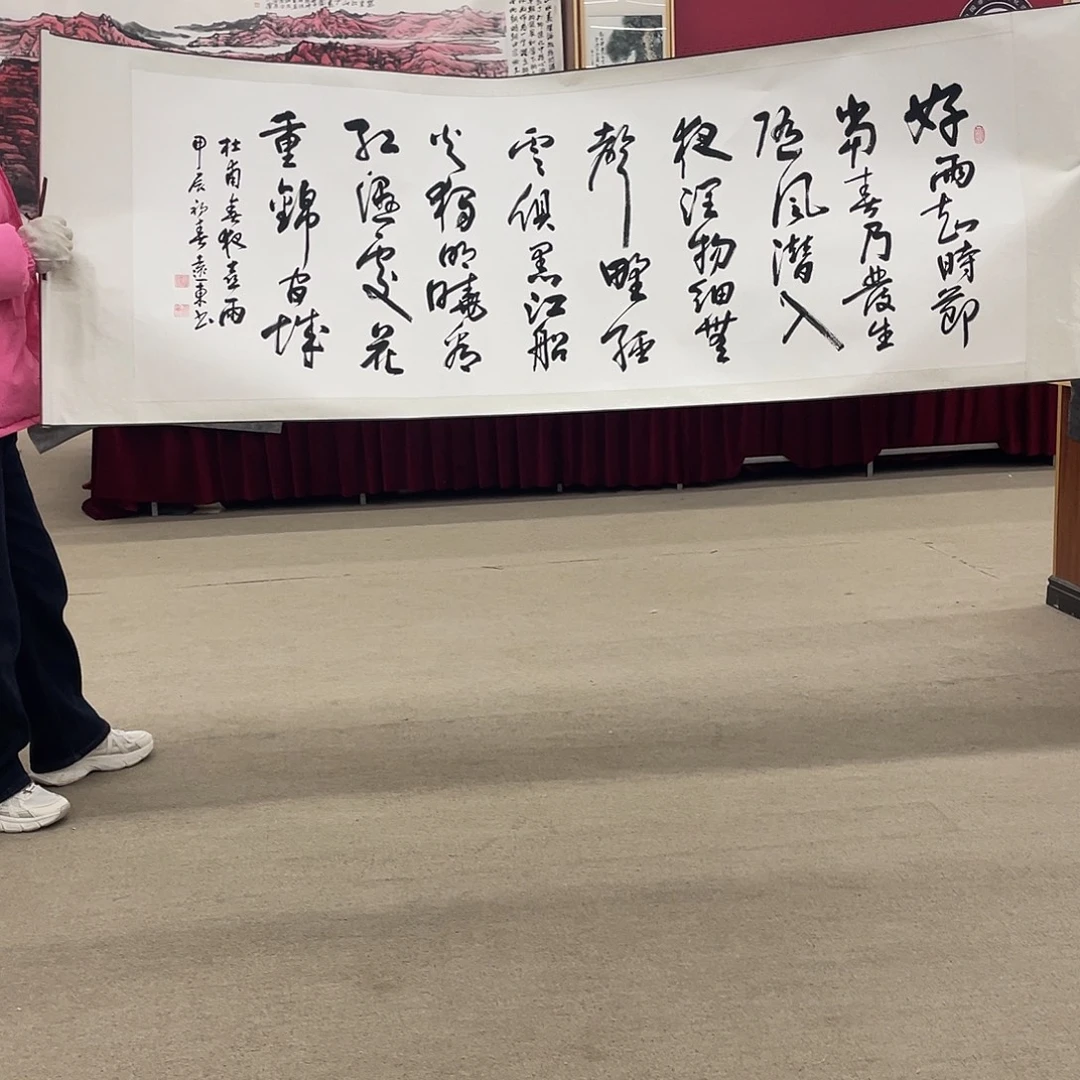 好雨知時節
當春乃發生
隨風潛入
夜潤物細無
聲野徑
雲俱黑江船
火獨明曉看
紅濕處花
重錦官城
杜甫春夜喜雨
甲辰初春袁東書